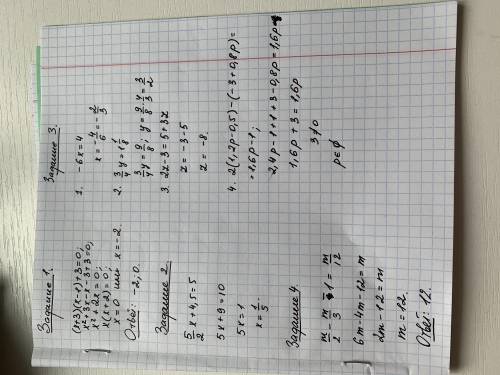 Задание 1.
(x+3)(x-1)+3=0;
x²+3x-x-3+3=0;
x²+2x=0;
x(x+2)=0;
x=0 или x=-2.
Ответ: -2; 0.
Задание 2.
5/2 x+4,5=5
5x+9=10
5x=1
x=1/5
Задание 4.
m/2 - m/3 - 1 = m/12
6m-4m-12=m
2m-12=m
m=12.
Ответ: 12.
Задание 3.
1. -6x=4
x=-4/6=-2/3
2. 3/4 y=1 1/8
3/4 y=9/8; y=9/8·4/3=3/2
3. 2z-3=5+3z
z=-3-5
z=-8.
4. 2(1,2p-0,5)-(-3+0,8p)=
=1,6p-1;
2,4p-1+1+3-0,8p=1,6p
1,6p+3=1,6p
3≠0
p∈∅